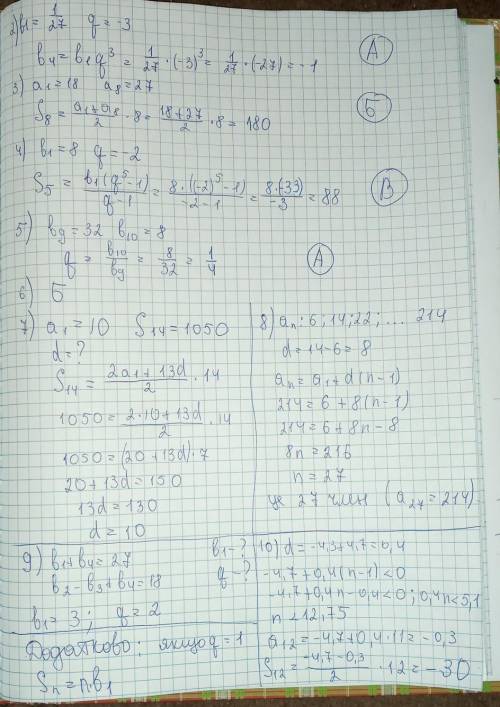 2) b1 = 1/27   q = -3
b4 = b1q³ = 1/27 · (-3)³ = 1/27 · (-27) = -1   А
3) a1 = 18   a8 = 27
S8 = (a1 + a8)/2 · 8 = (18 + 27)/2 · 8 = 180   Б
4) b1 = 8   q = -2
S5 = b1(q⁵ - 1)/(q - 1) = 8 · ((-2)⁵ - 1)/(-2 - 1) = 8 · (-33)/(-3) = 88   В
5) b9 = 32   b10 = 8
q = b10/b9 = 8/32 = 1/4   А
6) Б
7) a1 = 10   S14 = 1050
d = ?
S14 = (2a1 + 13d)/2 · 14
1050 = (2·10 + 13d)/2 · 14
1050 = (20 + 13d) · 7
20 + 13d = 150
13d = 130
d = 10
8) an: 6; 14; 22; ... 214
d = 14 - 6 = 8
an = a1 + d(n - 1)
214 = 6 + 8(n - 1)
214 = 6 + 8n - 8
8n = 216
n = 27
це 27 член (a27 = 214)
9) b1 + b4 = 27   b1 - ?
b2 - b3 + b4 = 18   q - ?
b1 = 3; q = 2
Додатково: якщо q = 1
Sn = n·b1
10) d = -4,3 + 4,7 = 0,4
-4,7 + 0,4(n - 1) < 0
-4,7 + 0,4n - 0,4 < 0; 0,4n < 5,1
n < 12,75
a12 = -4,7 + 0,4 · 11 = -0,3
S12 = (-4,7 - 0,3)/2 · 12 = -30